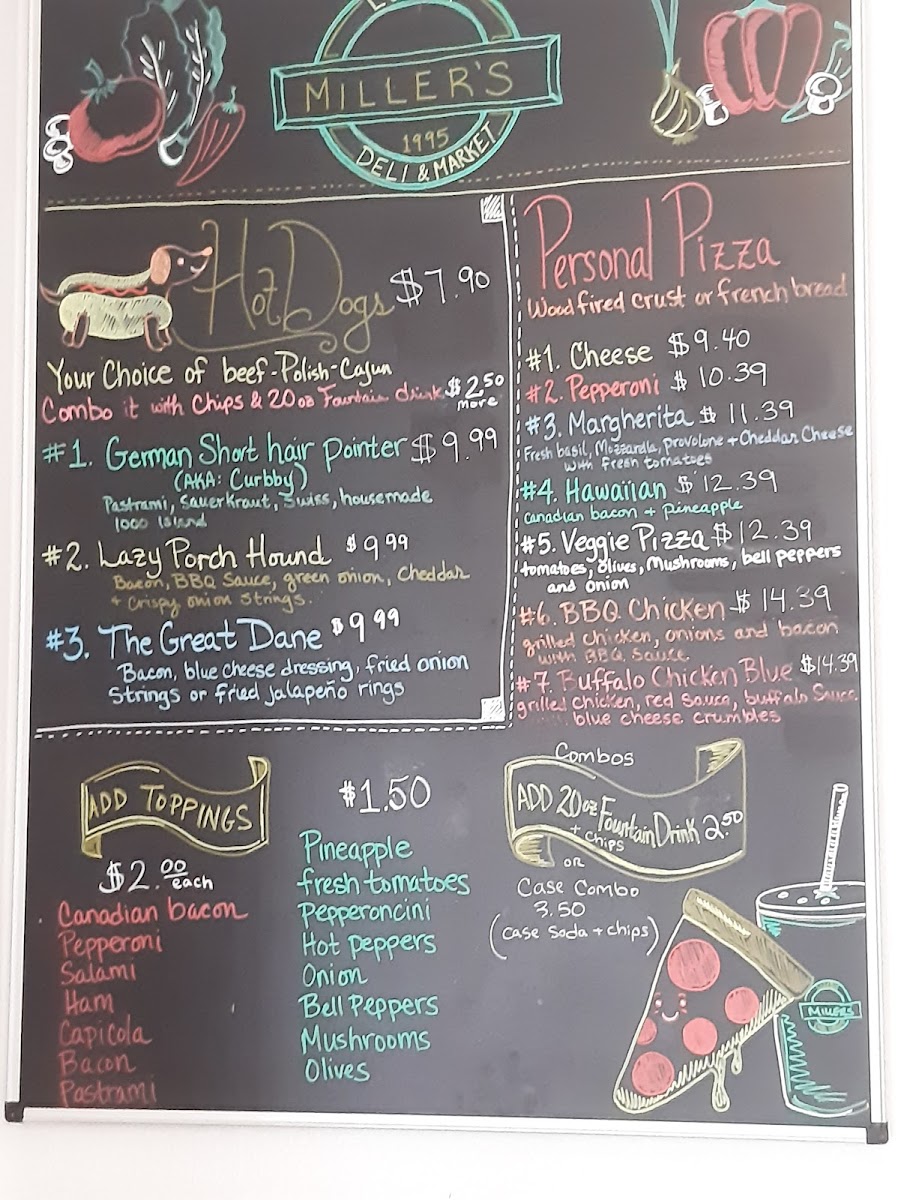 MILLER'S
1995
DELI & MARKET
Hot Dogs $7.90
Your Choice of beef-Polish-Cajun
Combo it with Chips & 20oz Fountain drink $2.50 more
#1. German Short hair pointer $9.99
(AKA: Curbby)
Pastrami, Sauerkraut, Swiss, housemade
1000 Island
#2. Lazy Porch Hound $9.99
Bacon, BBQ Sauce, green onion, Cheddar
+ Crispy onion strings.
#3. The Great Dane $9.99
Bacon, blue cheese dressing, fried onion
Strings or fried jalapeño rings
Personal Pizza
Wood fired crust or french bread
#1. Cheese $9.40
#2. Pepperoni $10.39
#3. Margherita $11.39
Fresh basil, Mozzarella, provolone + Cheddar Cheese
with fresh tomatoes
#4. Hawaiian $12.39
Canadian bacon + pineapple
#5. Veggie Pizza $12.39
tomatoes, olives, Mushrooms, bell peppers
and onion
#6. BBQ Chicken $14.39
grilled chicken, onions and bacon
with BBQ Sauce
#7. Buffalo Chicken Blue $14.39
grilled chicken, red sauce, buffalo Sauce
blue cheese crumbles
ADD TOPPINGS
$2.00 each
Canadian bacon
Pepperoni
Salami
Ham
Capicola
Bacon
Pastrami
$1.50
Pineapple
fresh tomatoes
Pepperoncini
Hot peppers
Onion
Bell Peppers
Mushrooms
Olives
Combos
ADD 20oz Fountain Drink 2.50
+ chips
OR
Case Combo
3.50
(Case Soda + chips)
MILLERS